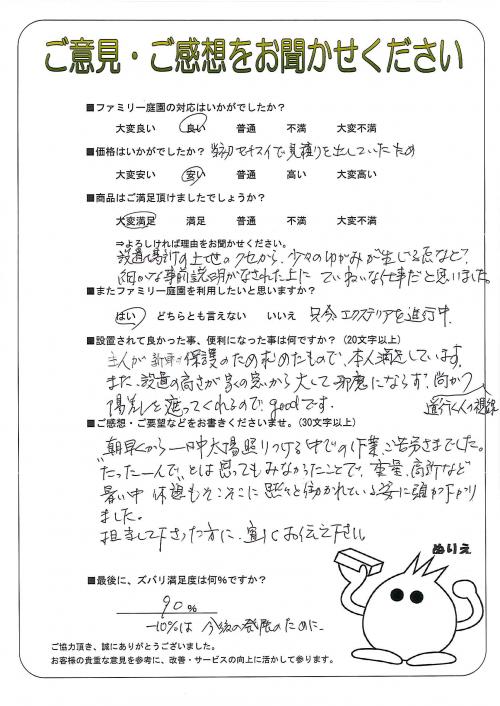 ご意見・ご感想をお聞かせください
■ファミリー庭園の対応はいかがでしたか？
大変良い 良い 普通 不満 大変不満
■価格はいかがでしたか？ 当初セキスイで見積りを出していたため
大変安い 安い 普通 高い 大変高い
■商品はご満足頂けましたでしょうか？
大変満足 満足 普通 不満 大変不満
⇒よろしければ理由をお聞かせください。
設置場所の土地のクセから、少々のゆがみが生じる点など、
細かな事前説明がなされた上に ていねいな仕事だと思いました。
■またファミリー庭園を利用したいと思いますか？
はい どちらとも言えない いいえ 只今エクステリアを進行中.
■設置されて良かった事、便利になった事は何ですか？（20文字以上）
主人が新車の保護のため求めたもので、本人満足しています。
また、設置の高さが家の窓から大して邪魔にならず、尚かつ
陽差しを遮ってくれるので goodです。
道行く人の視線
■ご感想・ご要望などをお書きくださいませ。（30文字以上）
朝早くから一日中太陽照りつける中での作業、ご苦労さまでした。
"たった一人で"とは思ってもみなかったことで、重量、高所など
暑い中 休憩もそこそこに 黙々と働かれている姿に頭が下がり
ました。
担当して下さった方に、宜しくお伝え下さい。
ぬりえ
■最後に、ズバリ満足度は何%ですか？
90 %
-10%は 今後の発展のために
ご協力頂き、誠にありがとうございました。
お客様の貴重な意見を参考に、改善・サービスの向上に活かして参ります。